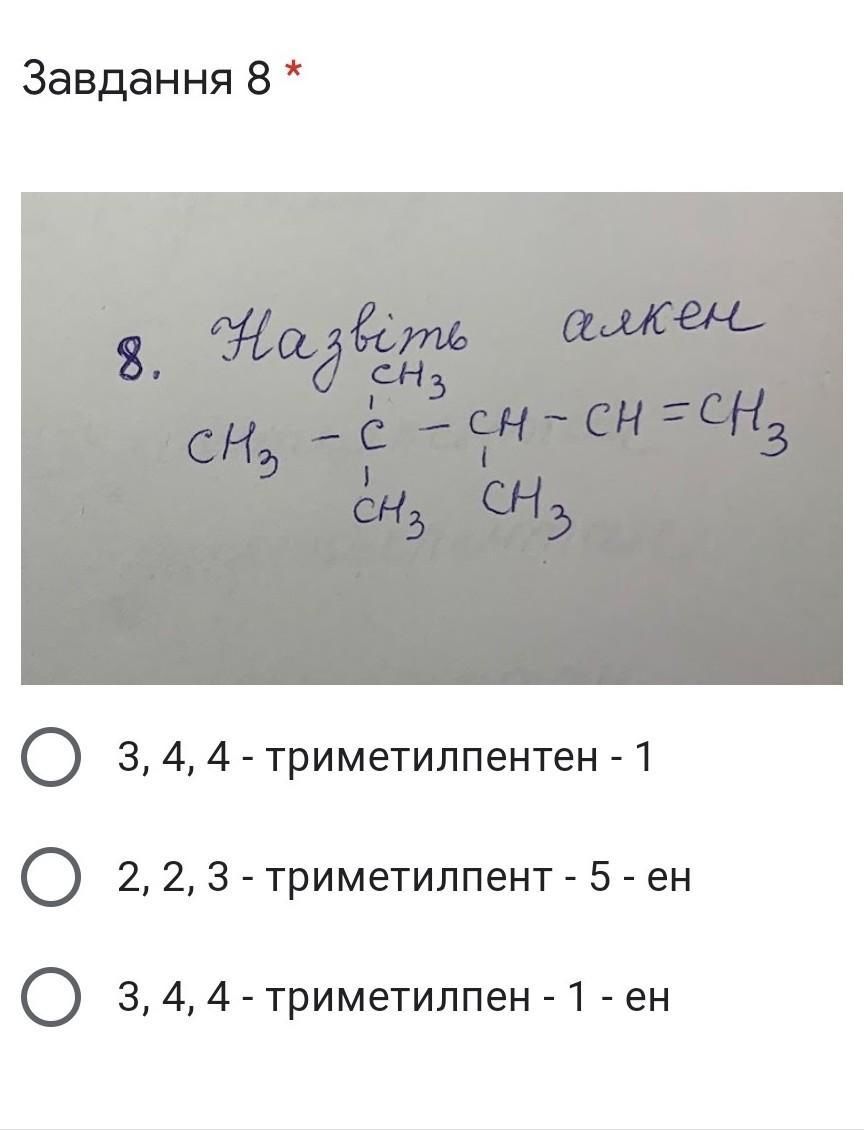 Завдання 8 *
8. Назвіть алкен
CH3
CH3 - C - CH - CH = CH3
CH3 CH3
3, 4, 4 - триметилпентен - 1
2, 2, 3 - триметилпент - 5 - ен
3, 4, 4 - триметилпен - 1 - ен